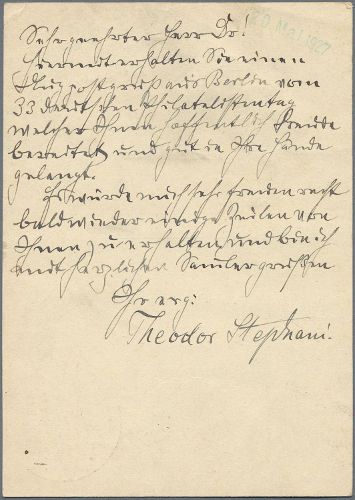 20. Mai 1927
Sehr geehrter Herr Dr!
Hiermit erhalten Sie einen
Flugpostgruß aus Berlin vom
33 deutschen Philatelistentag
welcher Ihnen hoffentlich Freude
bereitet und gut in Ihre Hände
gelangt.
Es würde mich sehr freuen recht
bald wieder einige Zeilen von
Ihnen zu erhalten und bin ich
mit herzlichen Sammlergrüßen
Ihr erg:
Theodor Stephani.